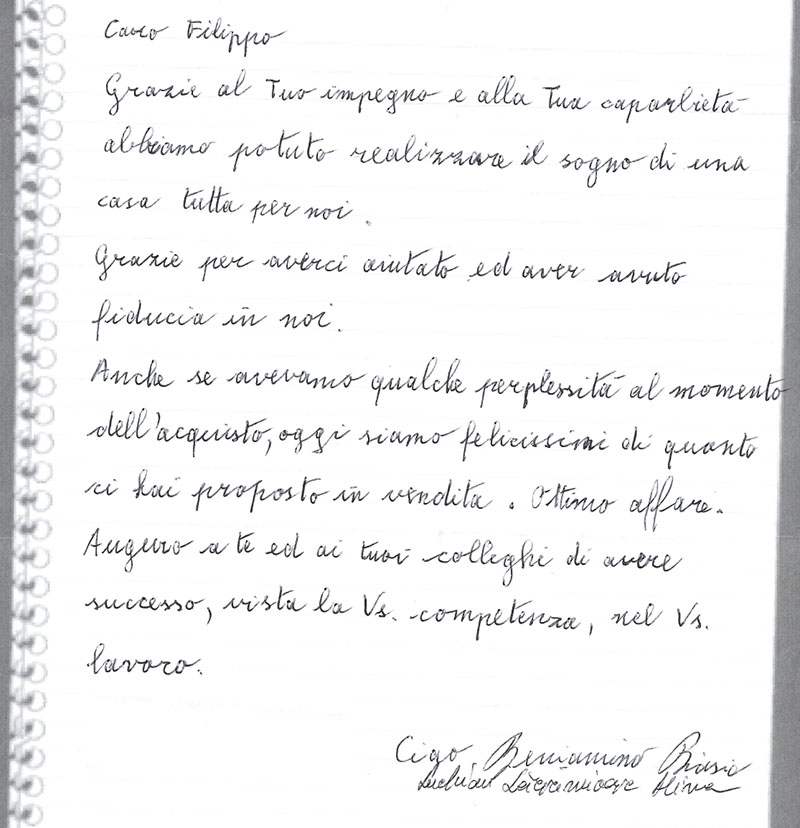 Caro Filippo
Grazie al Tuo impegno e alla Tua caparbietà
abbiamo potuto realizzare il sogno di una
casa tutta per noi.
Grazie per averci aiutato ed aver avuto
fiducia in noi.
Anche se avevamo qualche perplessità al momento
dell'acquisto, oggi siamo felicissimi di quanto
ci hai proposto in vendita. Ottimo affare.
Auguro a te ed ai tuoi colleghi di avere
successo, vista la Vs. competenza, nel Vs.
lavoro.
Ciao Beniamino Biasio
Alina